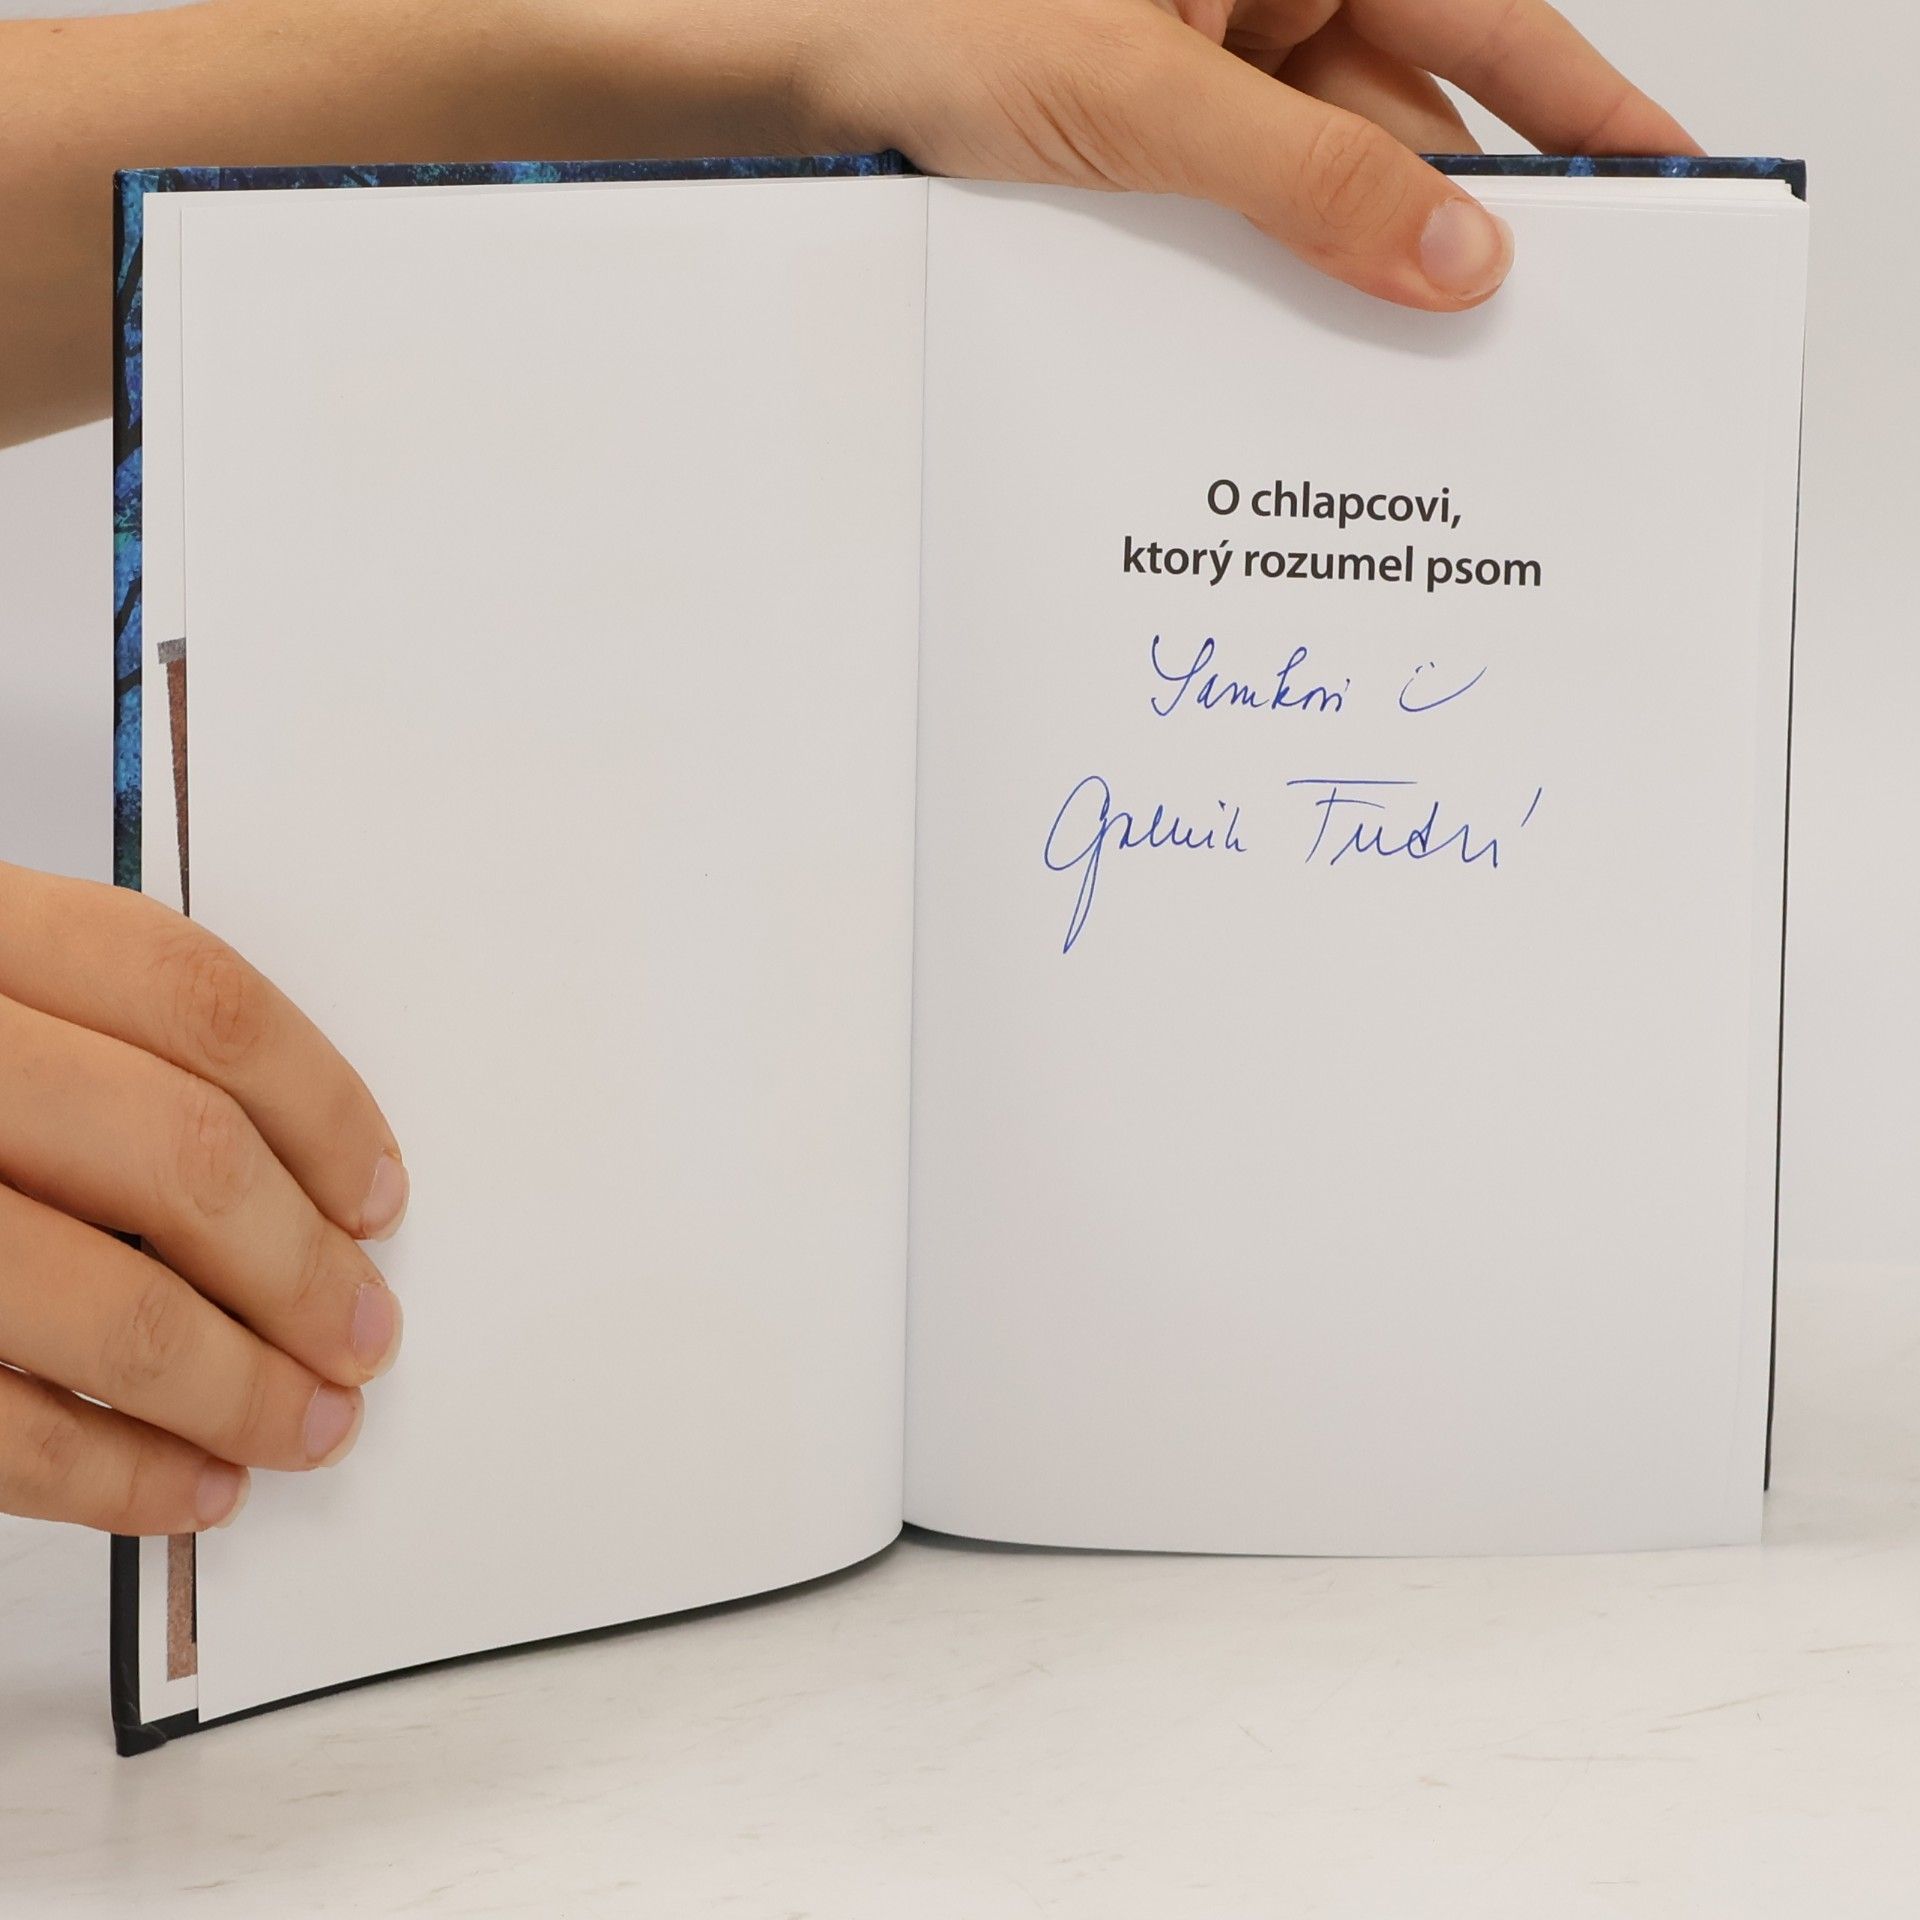 O chlapcovi,
ktorý rozumel psom
Samkovi
Gabriela Futová